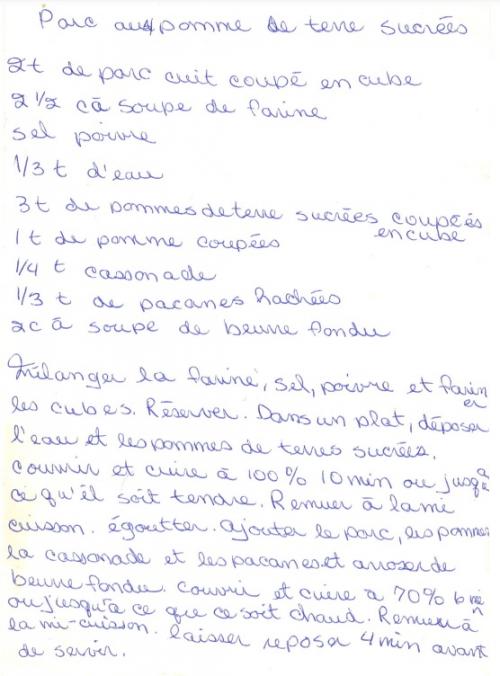 Porc aux pomme de terre sucrées
2t de porc cuit coupé en cube
2 1/2 c à soupe de farine
sel poivre
1/3 t d'eau
3t de pommes de terre sucrées coupées
en cube
1t de pomme coupées
1/4 t cassonade
1/3 t de pacanes hachées
2c à soupe de beurre fondu
Mélanger la farine, sel, poivre et farin
er
les cubes. Réserver. Dans un plat, déposer
l'eau et les pommes de terres sucrées.
Couvrir et cuire à 100% 10 min ou jusqu'à
ce qu'il soit tendre. Remuer à la mi
cuisson. égoutter. Ajouter le porc, les pommes
la cassonade et les pacanes et arroser de
beurre fondu. Couvrir et cuire à 70% 6 min
ou jusqu'à ce que ce soit chaud. Remuer à
la mi-cuisson. laisser reposer 4 min avant
de servir.